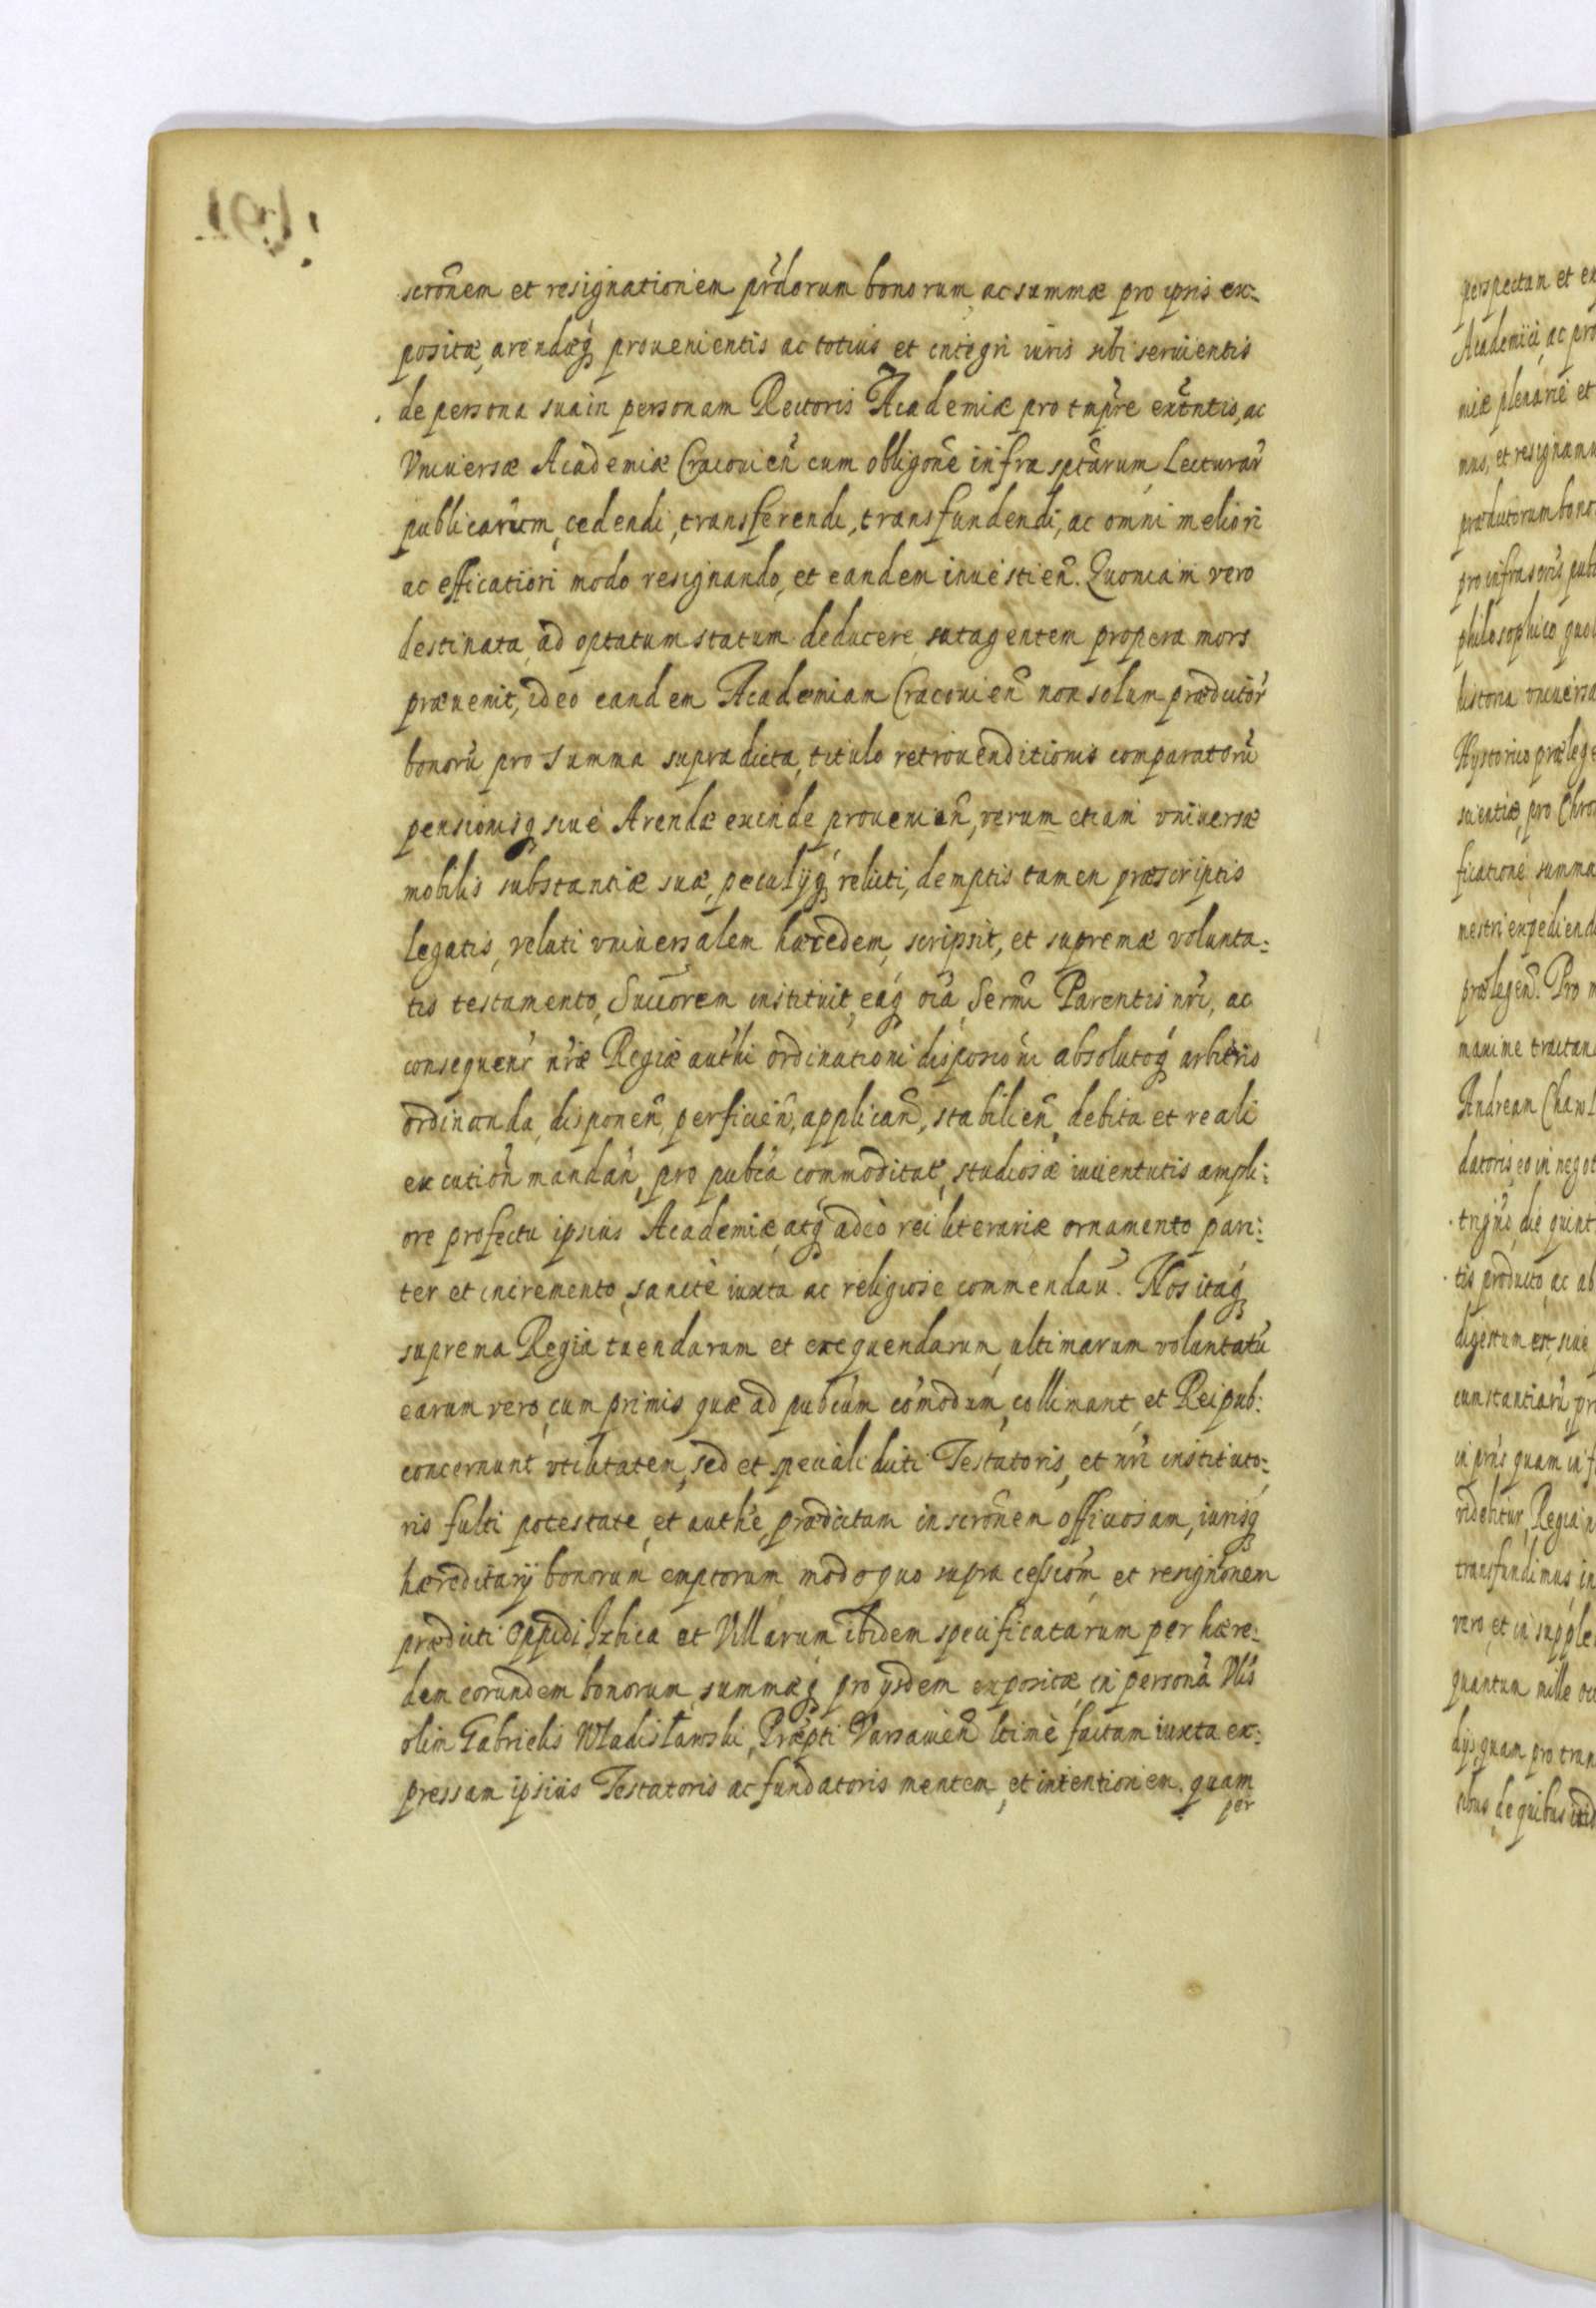 scrõnem et resignationem prdorum bonorum, ac summæ pro ipsis ex-
positæ, arendæq; prouenientis ac totius et integri iuris sibi seruientis
de persona sua in personam Rectoris Academiæ pro tmpre extntis, ac
Vniuersæ Academiæ Cracouien cum obligone infra sptarum, Lecturar
publicarum, cedendi, transferendi, transfundendi, ac omni meliori
ac efficatiori modo resignando, et eandem inuestien. Quoniam vero
destinata, ad optatum statum deducere, satagentem propera mors
præuenit, ideo eandem Academiam Cracouien non solum prædictor
bonorũ pro summa supradicta, titulo retrouenditionis comparatorũ
pensionisq; siue Arendæ exinde prouenien, verum etiam vniuersæ
mobilis substantiæ suæ, peculijq; relicti, demptis tamen præscriptis
Legatis, veluti vniuersalem hæredem, scripsit, et supremæ volunta-
tis testamento, Succorem instituit, eaq; oia, Sermi Parentis nri, ac
consequenr nræ Regiæ authi ordinationi disposioni absolutoq; arbitrio
ordinanda, disponen, perficien, applican, stabilien, debita et reali
excution mandan, pro pubca commoditat, studiosæ iuuentutis ampli-
ore profectu ipsius Academiæ, atq; adeò rei literariæ ornamento pari-
ter et incremento, sanctè iuxta ac religiose commendau. Nos itaq;
suprema Regia tuendarum et exequendarum, ultimarum voluntatũ
earum vero, cum primis quæ ad pubcum comodum, collimant, et Reipub:
concernunt vtilitatem, sed et speciali dicti Testatoris, et nri instituto-
ris fulti potestate, et authe, prædictam inscronem officiosam, iurisq;
hæreditarij bonorum emptorum, modo quo supra cessiom et resignonem
prædicti Oppidi Izbica et Villarum ibidem specificatarum per hære-
dem eorundem bonorum, summæq; pro ijsdem expositæ, in persona Vlis
olim Gabrielis Władisławski, Præpti Varsauien ltimè factam iuxta ex-
pressam ipsius Testatoris ac fundatoris mentem, et intentionem. quam
per